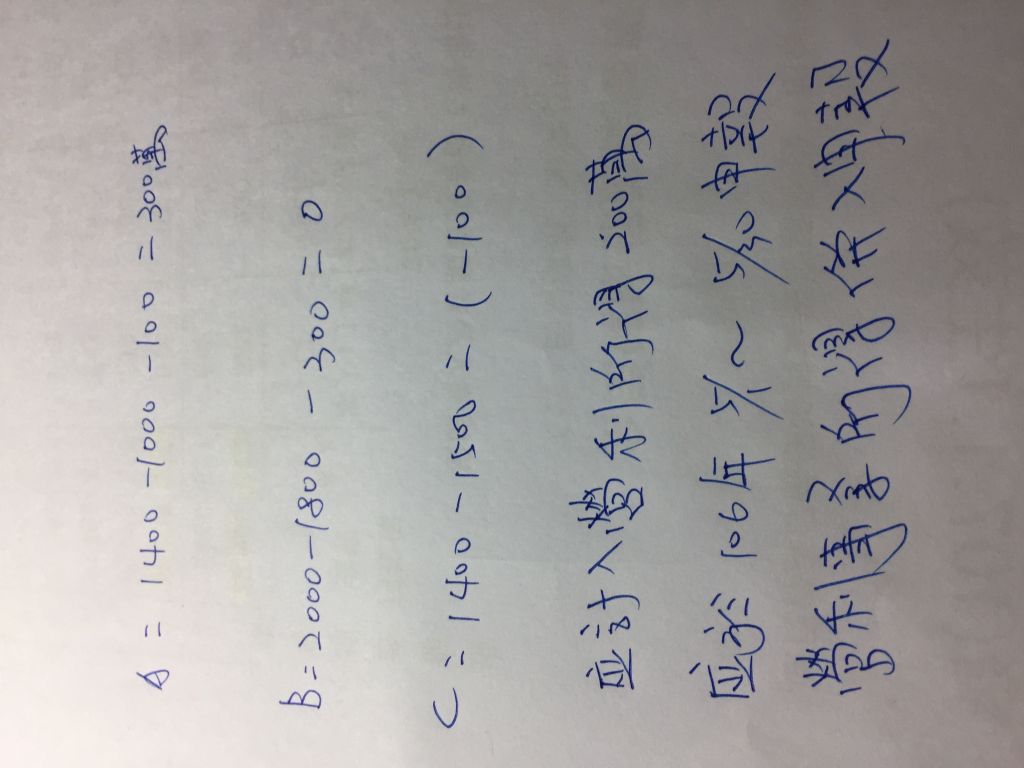 A = 1400 - 1000 - 100 = 300萬
B = 2000 - 1800 - 300 = 0
C = 1400 - 1500 = (-100)
应計入營利所得 200萬
应於 106年 5/1 ~ 5/30 申報
營利事業所得併入申報